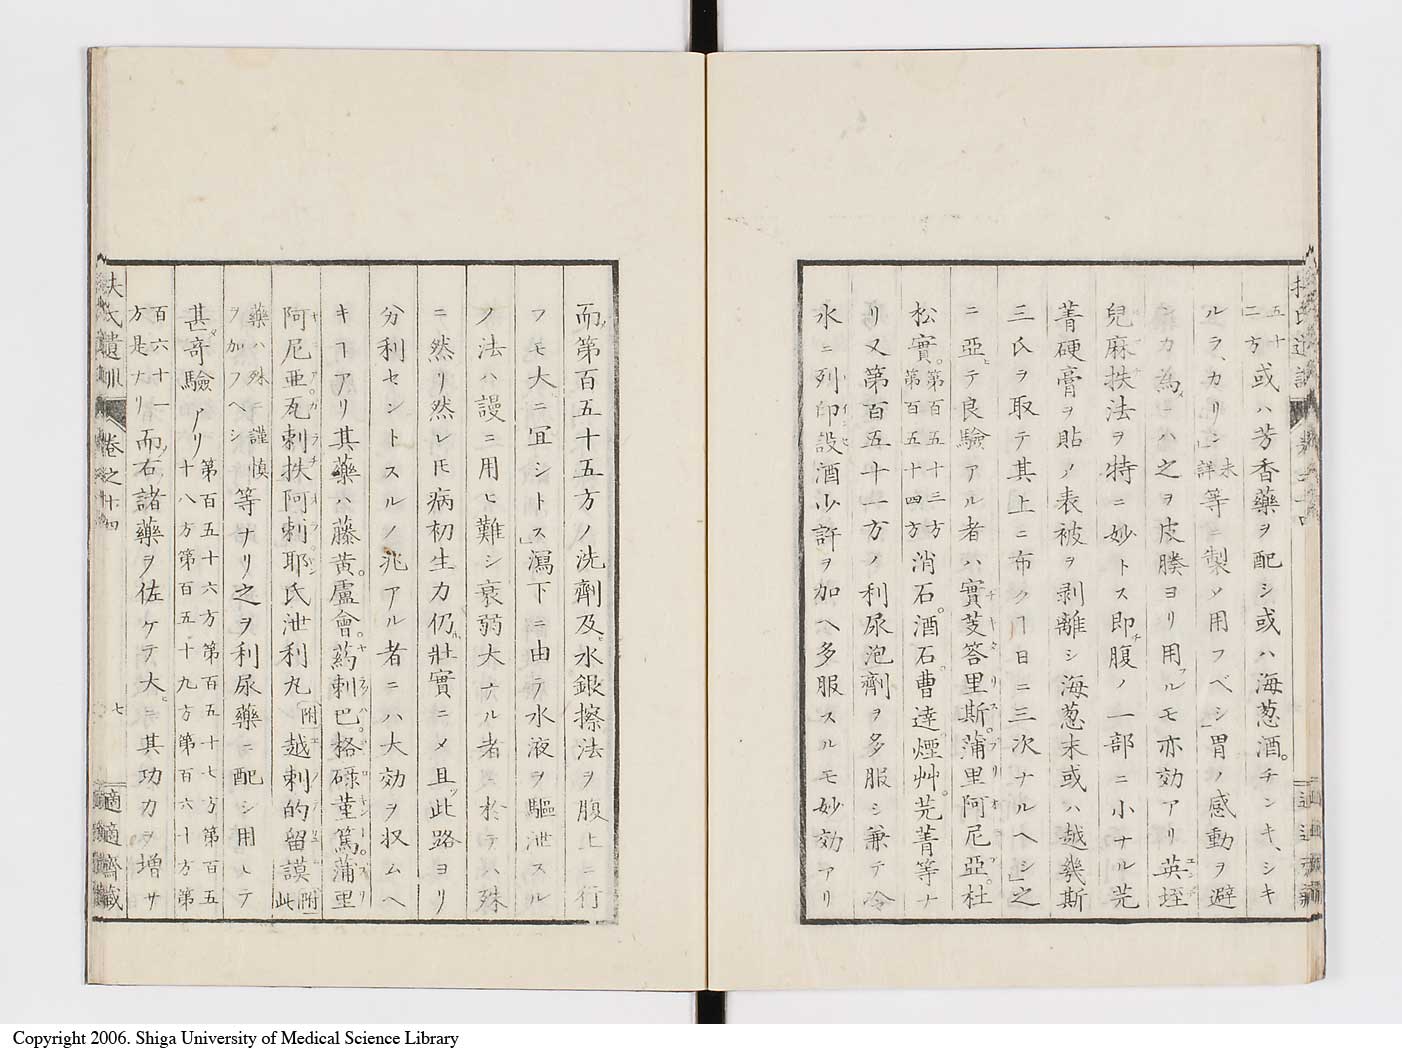 五十
二方 或ハ芳香藥ヲ配シ或ハ海葱酒。チンキ、シキ
ルラ、カリシ 未詳 等ニ製メ用フベシ」胃ノ感動ヲ避
カ為ニハ之ヲ皮膜ヨリ用フルモ亦効アリ英垤
兒麻扶法ヲ特ニ妙トス即チ腹ノ一部ニ小ナル芫
菁硬膏ヲ貼ノ表被ヲ剥離シ海葱末或ハ越幾斯
三氏ヲ取テ其上ニ布クヿ日ニ三次ナルヘシ」之
ニ亞テ良驗アル者ハ實芰答里斯。蒲里阿尼亞。杜
松實。第百五十三方
第百五十四方 消石。酒石。曹達。煙艸。芫菁等ナ
リ又第百五十一方ノ利尿泡劑ヲ多服シ兼テ冷
水ニ列印設酒少許ヲ加ヘ多服スルモ妙効アリ
而第百五十五方ノ洗劑及水銀擦法ヲ腹上ニ行
フモ大ニ冝シトス」瀉下ニ由テ水液ヲ驅泄スル
ノ法ハ謾ニ用ヒ難シ衰弱大ナル者ニ於テハ殊
ニ然リ然レ𪜈病初生力仍ホ壯實ニメ且此路ヨリ
分利セントスルノ兆アル者ニハ大効ヲ収ムヘ
キヿアリ其藥ハ藤黄。盧會。葯剌巴。格碌菫篤。蒲里
阿尼亞。瓦剌扶阿剌耶氏泄利丸 附 越剌的留謨 附此
藥ハ殊ニ謹慎
ヲ加フヘシ 等ナリ之ヲ利尿藥ニ配シ用ヒテ
甚タ奇驗アリ 第百五十六方第百五十七方第百五
十八方第百五十九方第百六十方第
百六十一
方是ナリ 而右諸藥ヲ佐ケテ大ニ其功力ヲ増サ
扶氏遺訓 卷之十四
七
適適齋藏